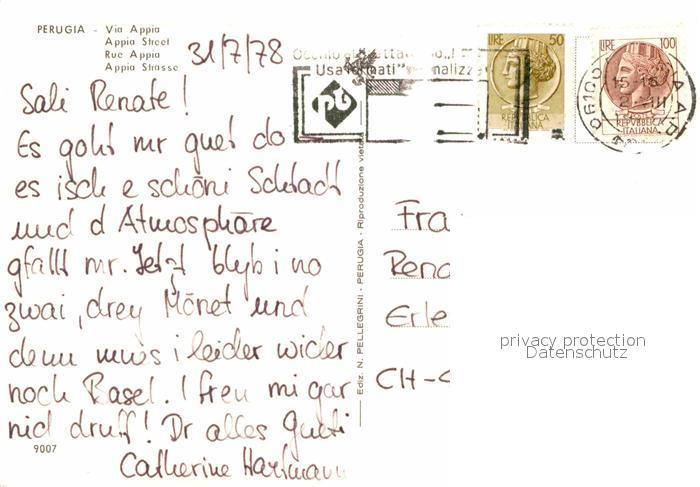 PERUGIA - Via Appia
Appia Street
Rue Appia
Appia Strasse
31/7/78
Sali Renate!
Es goht mr guet do
es isch e schöni Schtadt
und d Atmosphäre
gfallt mr. Jetzt blyb i no
zwai, drey Mönet und
denn muss i leider wider
noch Basel. I freu mi gar
nid druff! Dr alles Gueti
Catherine Hartmann
9007
Ediz. N. PELLEGRINI - PERUGIA - Riproduzione vietata
Usa formati"
pt
LIRE 50
REPVBBLICA
ITALIANA
LIRE 100
REPVBBLICA
ITALIANA
06100
15-16
Fra
Rena
Erle
CH-4
privacy protection
Datenschutz